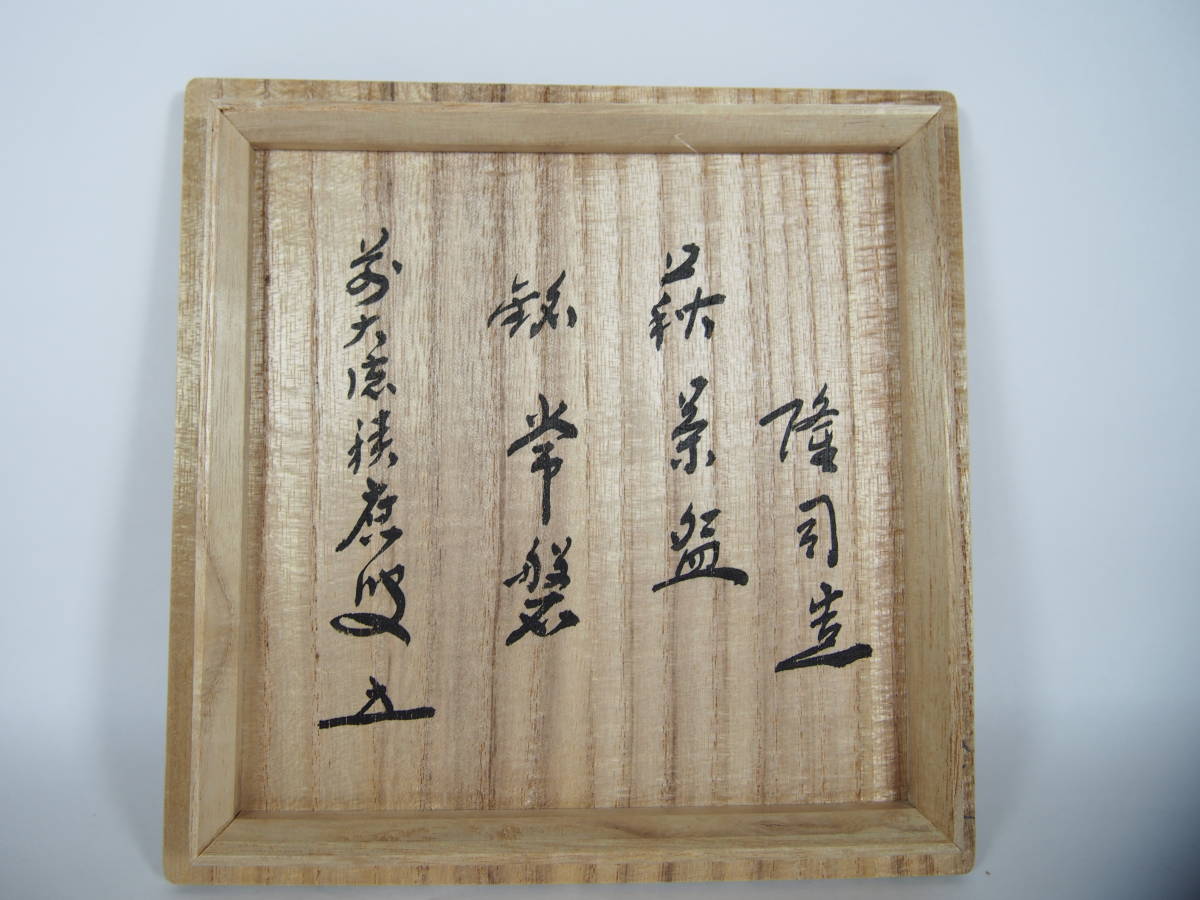 隆司造
萩茶盌
銘 常磐
前大徳積應叟